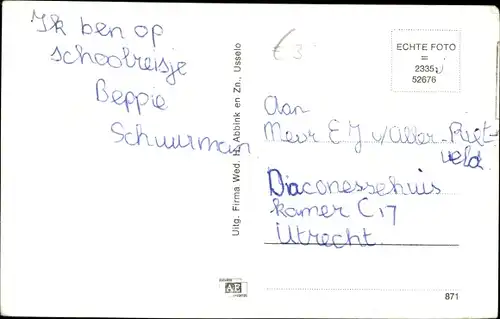 Ik ben op
schoolreisje
Beppie
Schuurman
Uitg. Firma Wed. H. Abbink en Zn., Usselo
€3
ECHTE FOTO
=
2335
52676
Aan
Mevr E J v/ Aller-Riet
veld.
Diaconessehuis
kamer C 17
Utrecht.
AE
871